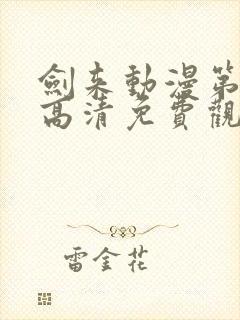 劍来動漫第
高清免費觀
雷金花